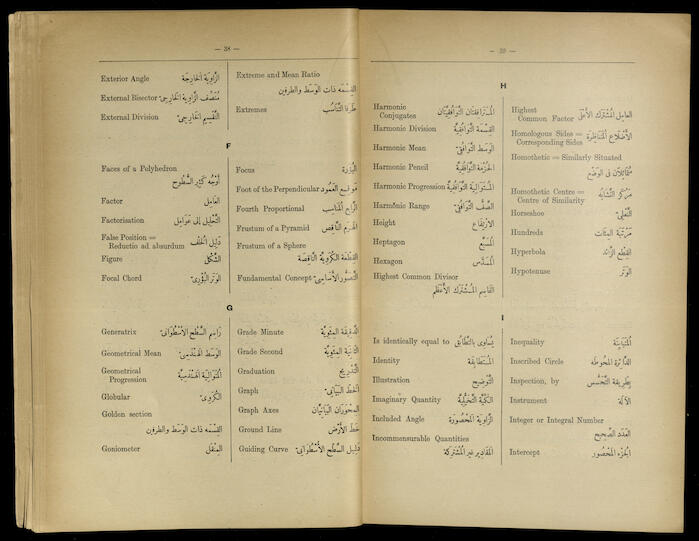 — 38 —
Exterior Angle الزَّاوِيَة الخَارِجَة
External Bisector مُنَصِّف الزَّاوِيَة الخَارِجِىّ
External Division التَّقْسِيم الخَارِجِىّ
Extreme and Mean Ratio
القِسْمَة ذات الوَسَط والطرفين
Extremes طَرَفا التَّنَاسُب
F
Faces of a Polyhedron
أوْجُه كَثِير السُّطُوح
Factor العَامِل
Factorisation التَّحْلِيل إلى عَوَامِل
False Position =
Reductio ad absurdum دَلِيل الخُلْف
Figure الشَّكْل
Focal Chord الوَتَر البُؤْرِىّ
Focus البُؤْرَة
Foot of the Perpendicular مَوقِع العَمُود
Fourth Proportional الرَّابِع المُنَاسِب
Frustum of a Pyramid الهَرَم النَّاقِص
Frustum of a Sphere
القِطْعَة الكُرَوِيَّة النَّاقِصَة
Fundamental Concept التَّصَوُّر الأَسَاسِىّ
G
Generatrix رَاسِم السَّطْح الأُسْطُوَانِىّ
Geometrical Mean الوَسَط الهَنْدَسِىّ
Geometrical
Progression المُتَوَالِيَة الهَنْدَسِيَّة
Globular الكُرَوِىّ
Golden section
القِسْمَة ذات الوَسَط والطرفين
Goniometer المِنْقَل
Grade Minute الدَّقِيقَة المِئَوِيَّة
Grade Second الثَّانِيَة المِئَوِيَّة
Graduation التَّدْرِيج
Graph الخَط البَيَانِىّ
Graph Axes المِحْوَرَان البَيَانِيَّان
Ground Line خَط الأَرْض
Guiding Curve دَلِيل السَّطْح الأُسْطُوَانِىّ
— 39 —
H
Harmonic
Conjugates المُتَرَافِقَتَان التَّوَافُقِيَّتَان
Harmonic Division القِسْمَة التَّوَافُقِيَّة
Harmonic Mean الوَسَط التَّوَافُقِىّ
Harmonic Pencil الحُزْمَة التَّوَافُقِيَّة
Harmonic Progression المُتَوَالِيَة التَّوَافُقِيَّة
Harmonic Range الصَّفّ التَّوَافُقِىّ
Height الارْتِفَاع
Heptagon المُسَبَّع
Hexagon المُسَدَّس
Highest Common Divisor
القَاسِم المُشْتَرَك الأَعْظَم
Highest
Common Factor العَامِل المُشْتَرَك الأَعْلَى
Homologous Sides =
Corresponding Sides الأَضْلَاع المُتَنَاظِرَة
Homothetic = Similarly Situated
مُتَمَاثِلَان فى الوَضْع
Homothetic Centre =
Centre of Similarity مَرْكَز التَّشَابُه
Horseshoe النَّعْلِىّ
Hundreds مَرْتَبَة المِئَات
Hyperbola القَطْع الزَّائد
Hypotenuse الوَتَر
I
Is identically equal to يُسَاوِى بالتَّطَابُق
Identity المُتَطَابِقَة
Illustration التَّوْضِيح
Imaginary Quantity الكَمِّيَّة التَّخَيُّلِيَّة
Included Angle الزَّاوِيَة المَحْصُورَة
Incommensurable Quantities
المَقَادِير غير المُشْتَرِكَة
Inequality المُتَبَايِنَة
Inscribed Circle الدَّائِرَة المَحُوطَة
Inspection, by بِطَرِيقَة التَّحَسُّس
Instrument الآلَة
Integer or Integral Number
العَدَد الصَّحِيح
Intercept الجُزْء المَحْصُور